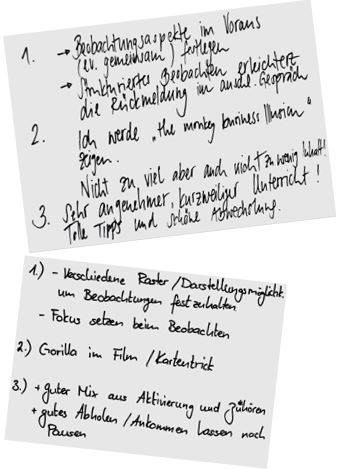 1. → Beobachtungsaspekte im Voraus
(ev. gemeinsam) festlegen
→ Strukturiertes Beobachten erleichtert
die Rückmeldung im anschl. Gespräch
2. Ich werde "the monkey business Illusion"
zeigen.
Nicht zu viel aber auch nicht zu wenig Inhalt!
3. Sehr angenehmer, kurzweiliger Unterricht!
Tolle Tipps und schöne Abwechslung.
1.) - Verschiedene Raster/Darstellungsmöglichk.
um Beobachtungen festzuhalten
- Fokus setzen beim Beobachten
2.) Gorilla im Film / Kartentrick
3.) + guter Mix aus Aktivierung und Zuhören
+ gutes Abholen / Ankommen lassen nach
Pausen